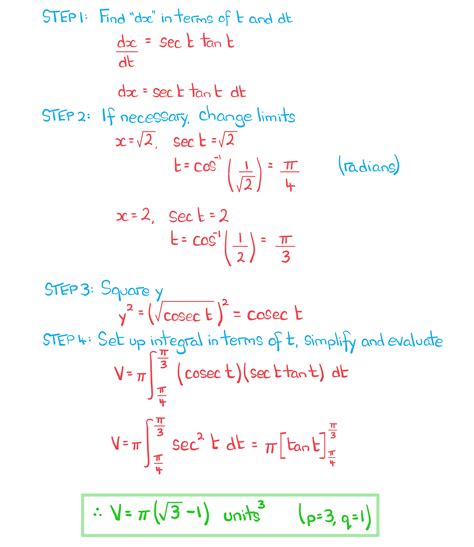 STEP 1: Find "dx" in terms of t and dt
dx/dt = sec t tan t
dx = sec t tan t dt
STEP 2: If necessary, change limits
x = √2, sec t = √2
t = cos⁻¹(1/√2) = π/4 (radians)
x = 2, sec t = 2
t = cos⁻¹(1/2) = π/3
STEP 3: Square y
y² = (√cosec t)² = cosec t
STEP 4: Set up integral in terms of t, simplify and evaluate
V = π∫_{π/4}^{π/3} (cosec t)(sec t tan t) dt
V = π∫_{π/4}^{π/3} sec² t dt = π[tan t]_{π/4}^{π/3}
∴ V = π(√3 − 1) units³ (p=3, q=1)